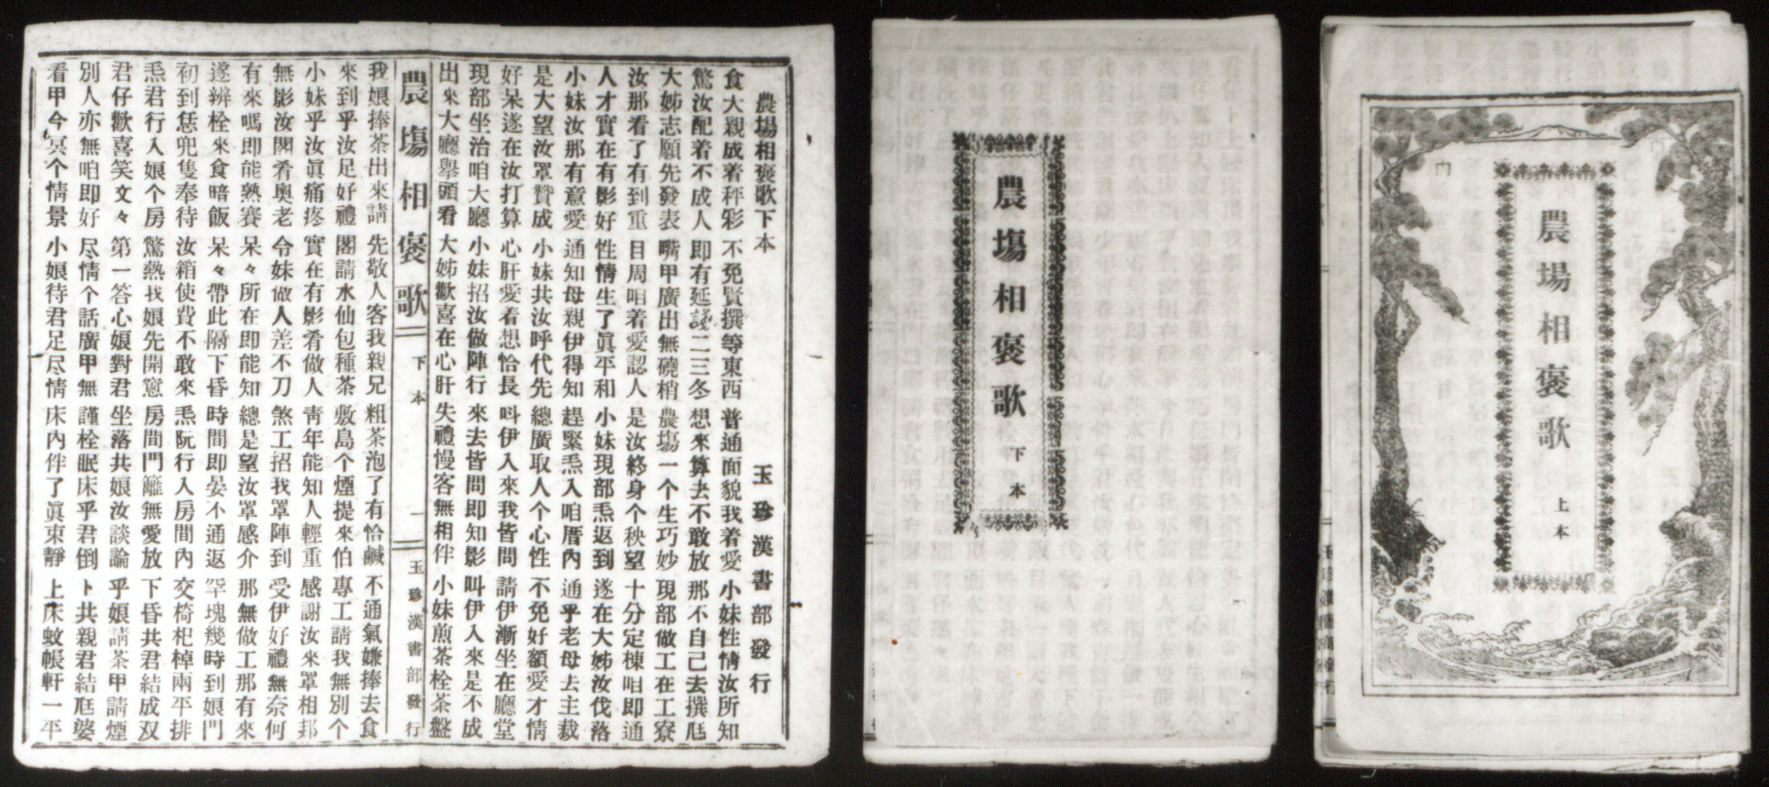 農場相褒歌 上本
農塲相褒歌 下本
農場相褒歌下本 玉珍漢書部發行
食大親成着秤彩 不免賢撰等東西 普通面貌我着愛 小妹性情汝所知
驚汝配着不成人 即有延誤二三冬 想來算去不敢放 那不自己去撰尪
大姊志願先發表 嘴甲廣出無磽梢 農塲一个生巧妙 現部做工在工寮
汝那看了有到重 目周咱着愛認人 是汝終身个秧望 十分定棟咱即通
人才實在有影好 性情生了眞平和 小妹現部焄返到 遂在大姊汝伐落
小妹汝那有意愛 通知母親伊得知 趕緊焄入咱厝內 通乎老母去主裁
是大望汝罩贊成 小妹共汝呼代先 總廣取人个心性 不免好額愛才情
好呆遂在汝打算 心肝愛着想恰長 呌伊入來我皆問 請伊漸坐在廳堂
現部坐治咱大廳 小妹招汝做陣行 來去皆問即知影 叫伊入來是不成
出來大廳擧頭看 大姊歡喜在心肝 失禮慢客無相伴 小妹煎茶栓茶盤
農塲相褒歌 下本 一 玉珍漢書部發行
我娘捧茶出來請 先敬人客我親兄 粗茶泡了有恰鹹 不通氣嫌捧去食
來到乎汝足好禮 閣請水仙包種茶 敷島个煙提來伯 專工請我無別个
小妹乎汝眞痛疼 實在有影肴做人 青年能知人輕重 感謝汝來罩相邦
無影汝閣肴奧老 令妹做人差不刀 煞工招我罩陣到 受伊好禮無奈何
有來嗎即能熟賽 呆々所在即能知 總是望汝罩感介 那無做工那有來
遂辨栓來食暗飯 呆々帶此隔下昏 時間即晏不通返 罕塊幾時到娘門
初到恁兜隻奉待 汝箱使費不敢來 焄阮行入房間內 交椅杞棹兩平排
焄君行入娘个房 驚熱我娘先開窓 房間門籬無愛放 下昏共君結成双
君仔歡喜笑文々 第一答心娘對君 坐落共娘汝談論 乎娘請茶甲請煙
別人亦無咱即好 尽情个話廣甲無 謹栓眠床乎君倒 卜共親君結尪婆
看甲今冥个情景 小娘待君足尽情 床內伴了眞束靜 上床蚊帳軒一平